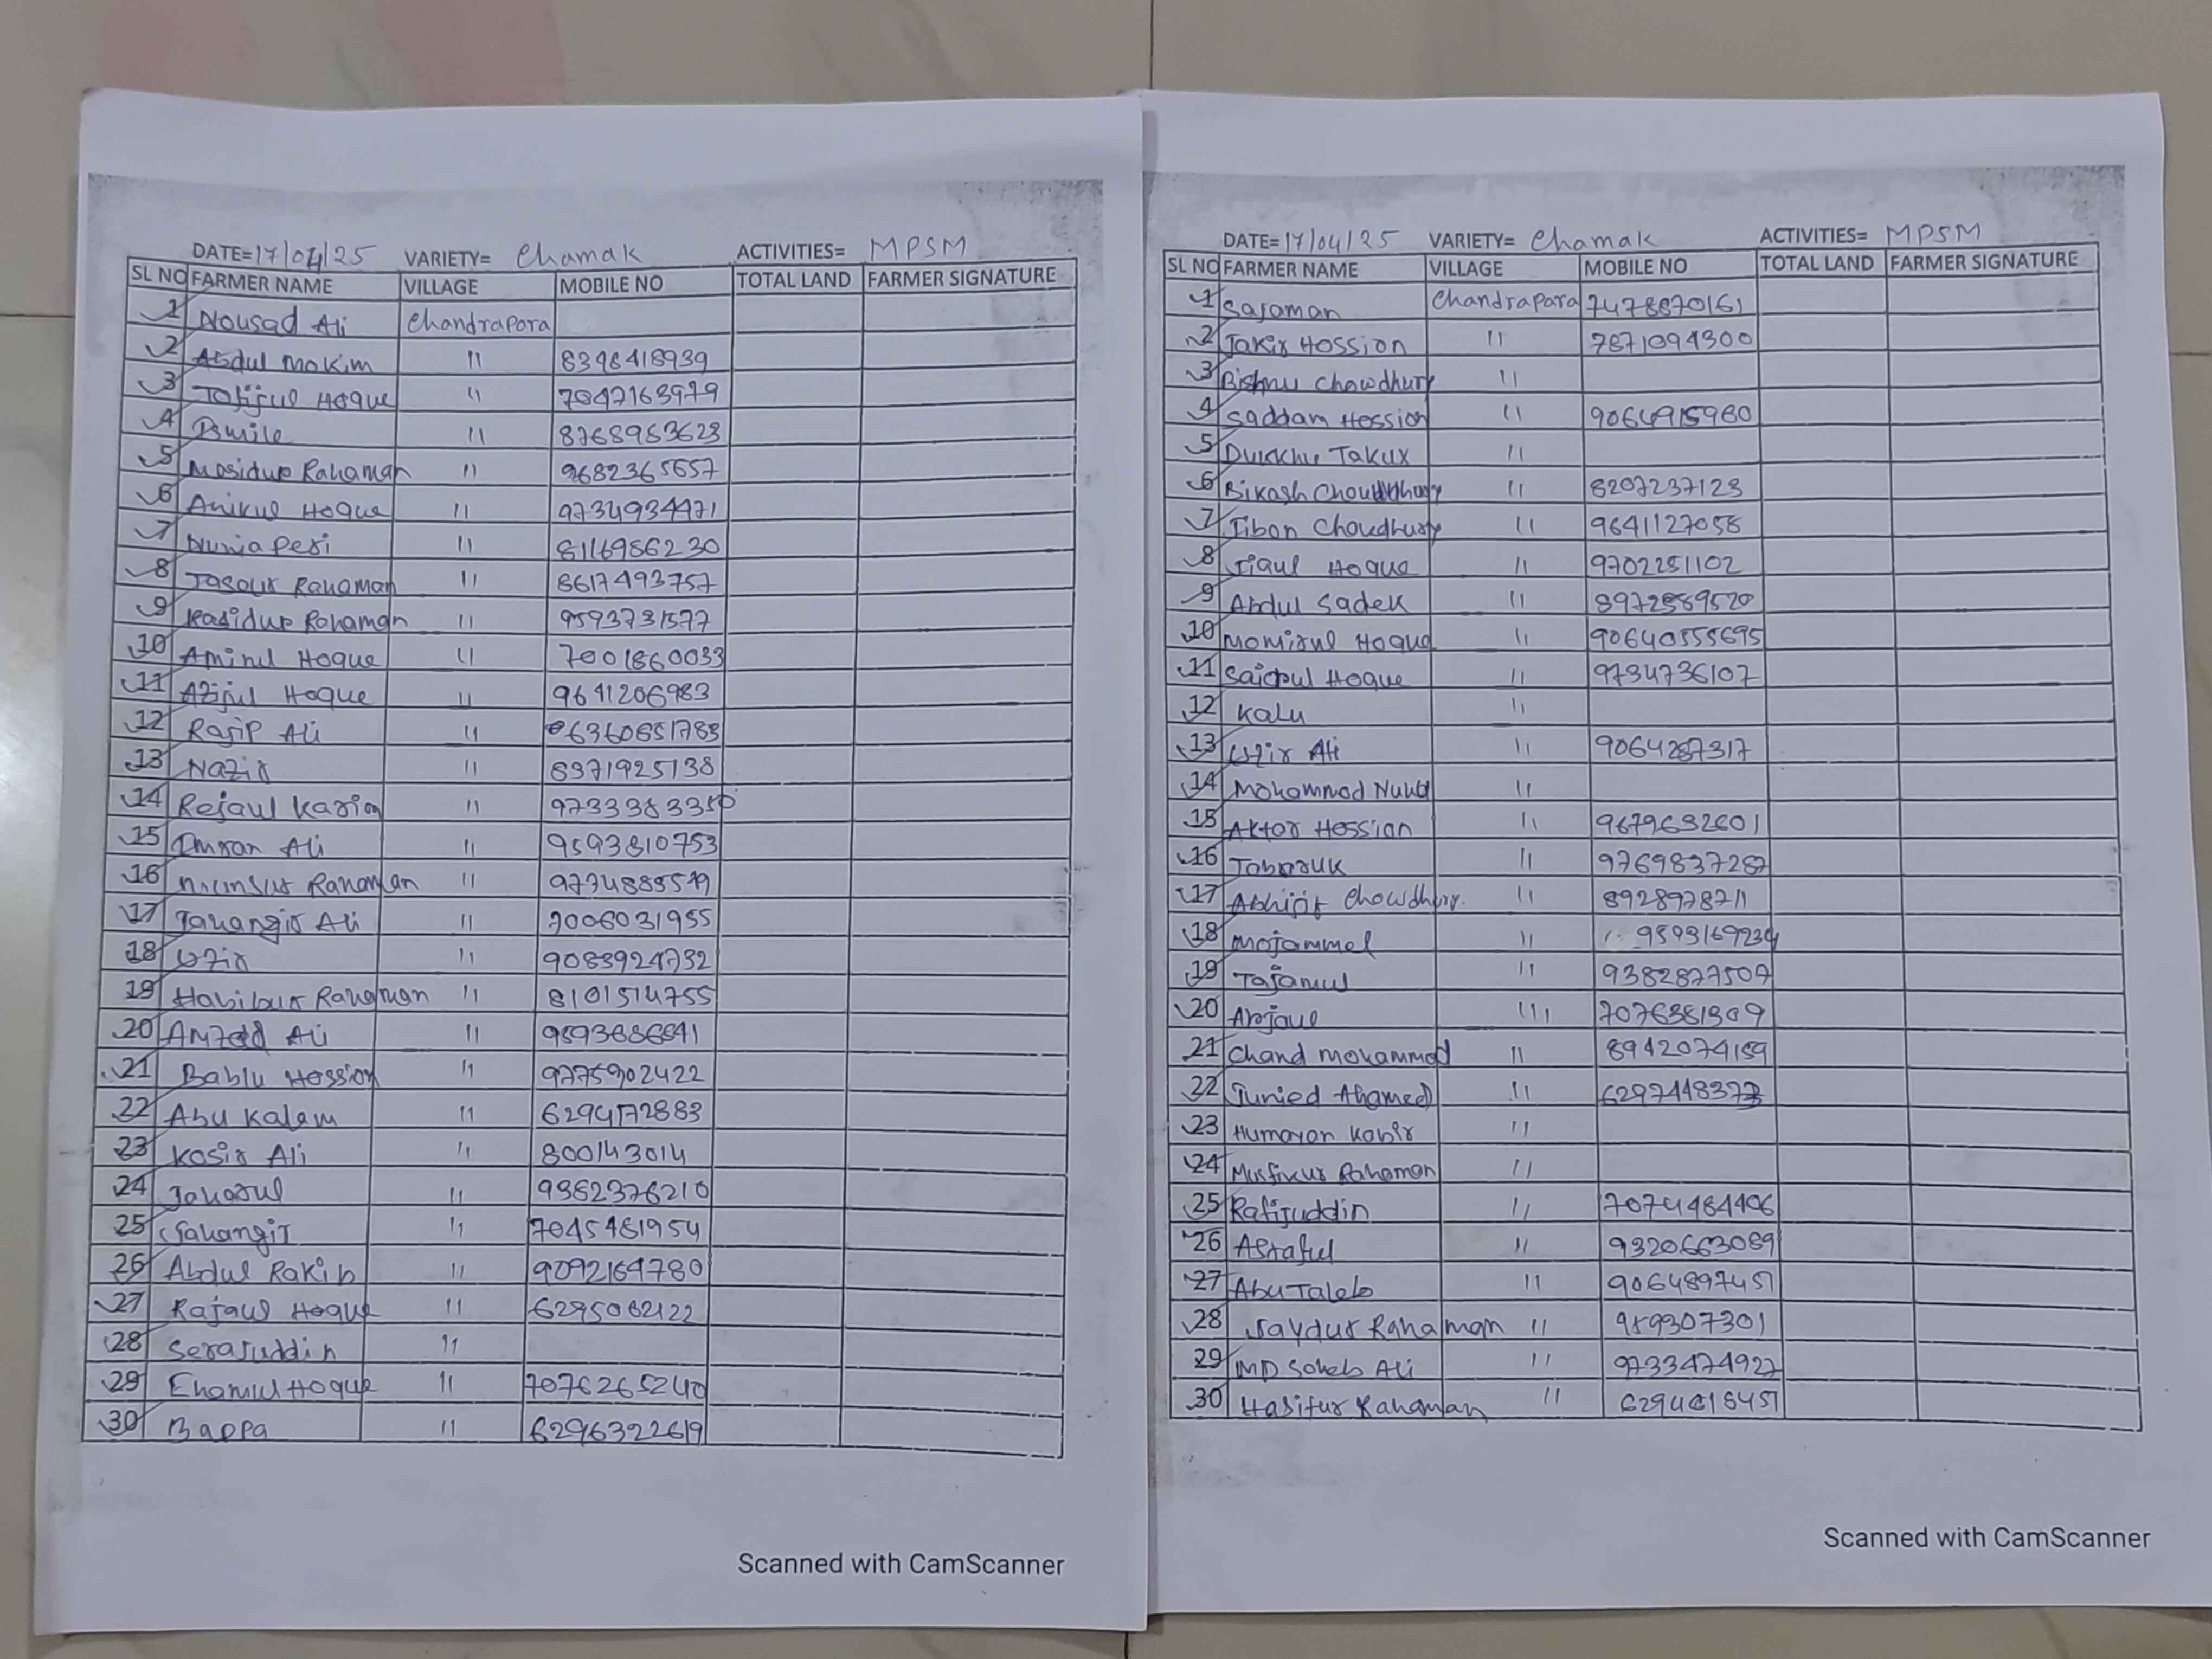 DATE=17/04/25 VARIETY= Chamak ACTIVITIES= MPSM
SL NO FARMER NAME VILLAGE MOBILE NO TOTAL LAND FARMER SIGNATURE
1 Nousad Ali Chandrapora
2 Abdul Mokim 11 8398418939
3 Tofijul Hoque 11 7047163979
4 Ismile 11 8768953623
5 Mosidur Rahaman 11 9682365657
6 Anikul Hoque 11 9734934471
7 11 8116986230
8 Tasour Rahaman 11 8617493757
9 Rasidur Rahaman 11 9593731577
10 Aminul Hoque 11 7001860033
11 Azijul Hoque 11 9641206983
12 Rajip Ali 11
13 Nazir 11 8371925138
14 Rejaul Karim 11 9733383350
15 Imran Ali 11 9593810753
16 Munsur Rahaman 11
17 Jahangir Ali 11 7006031955
18 Uzir 11 9083924732
19 Habibur Rahaman 11 8101514755
20 Amzad Ali 11 9593686541
21 Bablu Hossion 11 9775902422
22 Abu Kalam 11 6294172883
23 Kosir Ali 11 800143014
24 Joharul 11 9382376210
25 Jahangir 11 7045481954
26 Abdul Rakib 11 9092164780
27 Rajaul Hoque 11 6295082122
28 Serajuddin 11
29 Ehamul Hoque 11 7076265240
30 Bappa 11 6296322619
Scanned with CamScanner
DATE=17/04/25 VARIETY= Chamak ACTIVITIES= MPSM
SL NO FARMER NAME VILLAGE MOBILE NO TOTAL LAND FARMER SIGNATURE
1 Sajaman Chandrapara 7478870161
2 Jakir Hossion 11 7871094300
3 Bishnu Chowdhury 11
4 Saddam Hossion 11 9064915980
5 Dukkhu Takur 11
6 Bikash Choudhury 11 8207237123
7 Jibon Choudhury 11 9641127058
8 Jiaul Hoque 11 9702251102
9 Abdul Sadek 11 8972589520
10 Momirul Hoque 11 90640555695
11 Hoque 11 9734736107
12 Kalu 11
13 Uzir Ali 11 9064287317
14 Mohammod 11
15 Aktar Hossion 11 9679632601
16 Tobaruk 11 9769837287
17 Abhijit Chowdhury. 11 8928978711
18 Mojammel 11 9593169234
19 Tajamul 11 9382877507
20 Abjaul 111 7076381309
21 Chand Mohammod 11 8942074159
22 Junied Ahamed 11
23 Humayon Kabir 11
24 Musfikur Rahaman 11
25 Rafijuddin 11 7074484406
26 Asraful 11 9320663089
27 Abu Taleb 11 9064897451
28 Saydur Rahaman 11 959307301
29 MD Soheb Ali 11 9733474927
30 Hasifur Rahaman 11 6294618451
Scanned with CamScanner